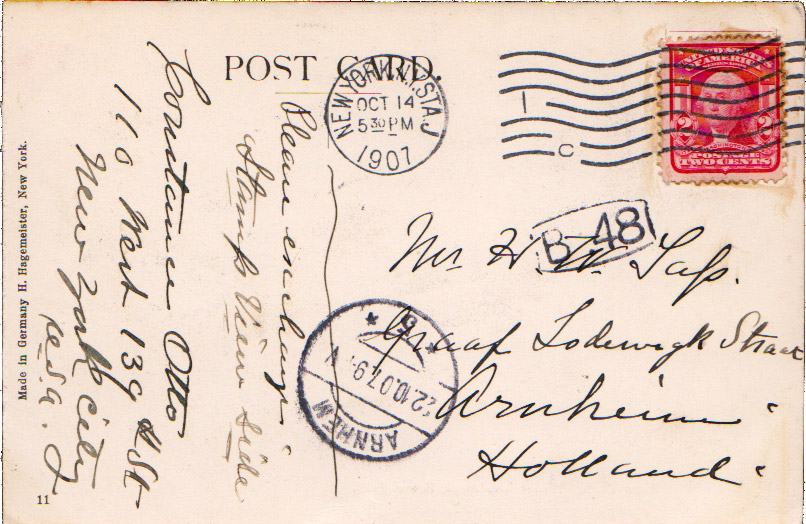 POST CARD.
Constance Otto
110 West 139 St
New York City
U.S.A.
Please exchange
Stamps View Side
NEW YORK, N.Y. STA. J
OCT 14
5 30 PM
1907
1
C
UNITED STATES
OF AMERICA
2 2
POSTAGE
TWO CENTS
B 48
Mr H. W. Taps.
Graaf Lodewijk Straat
Arnheim
Holland
ARNHEM
22.10.07.9
V
5
Made in Germany H. Hagemeister, New York.
11